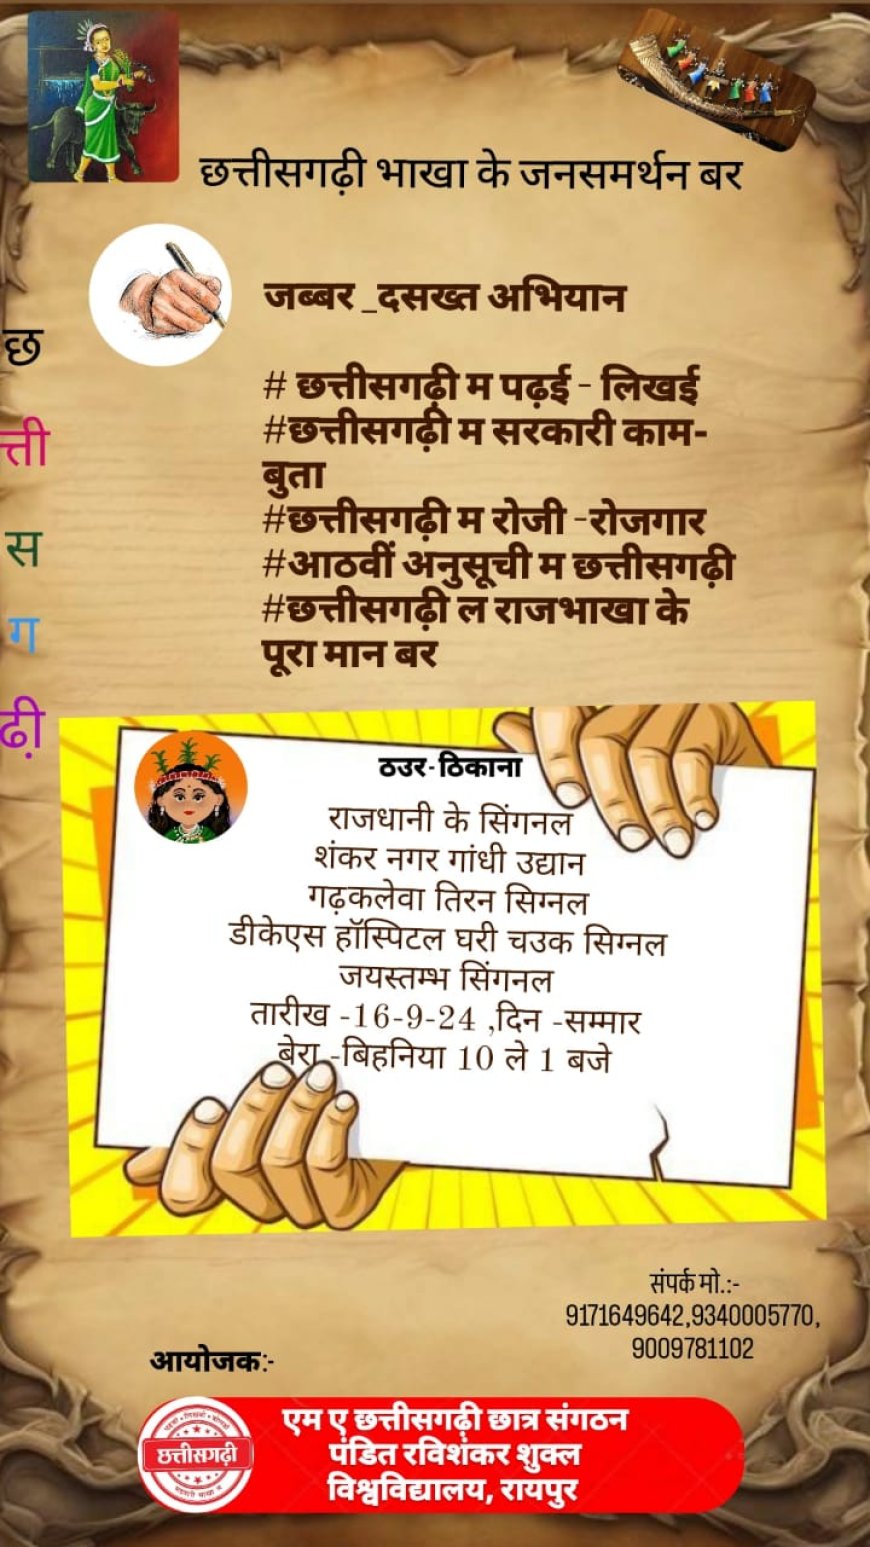 छत्तीसगढ़ी भाखा के जनसमर्थन बर
जब्बर _दसख्त अभियान
छ
त्ती
स
ग
ढ़ी
# छत्तीसगढ़ी म पढ़ई - लिखई
#छत्तीसगढ़ी म सरकारी काम-
बुता
#छत्तीसगढ़ी म रोजी -रोजगार
#आठवीं अनुसूची म छत्तीसगढ़ी
#छत्तीसगढ़ी ल राजभाखा के
पूरा मान बर
ठउर-ठिकाना
राजधानी के सिंगनल
शंकर नगर गांधी उद्यान
गढ़कलेवा तिरन सिग्नल
डीकेएस हॉस्पिटल घरी चउक सिग्नल
जयस्तम्भ सिंगनल
तारीख -16-9-24 ,दिन -सम्मार
बेरा -बिहनिया 10 ले 1 बजे
संपर्क मो.:-
9171649642,9340005770,
9009781102
आयोजक:-
छत्तीसगढ़ी
एम ए छत्तीसगढ़ी छात्र संगठन
पंडित रविशंकर शुक्ल
विश्वविद्यालय, रायपुर